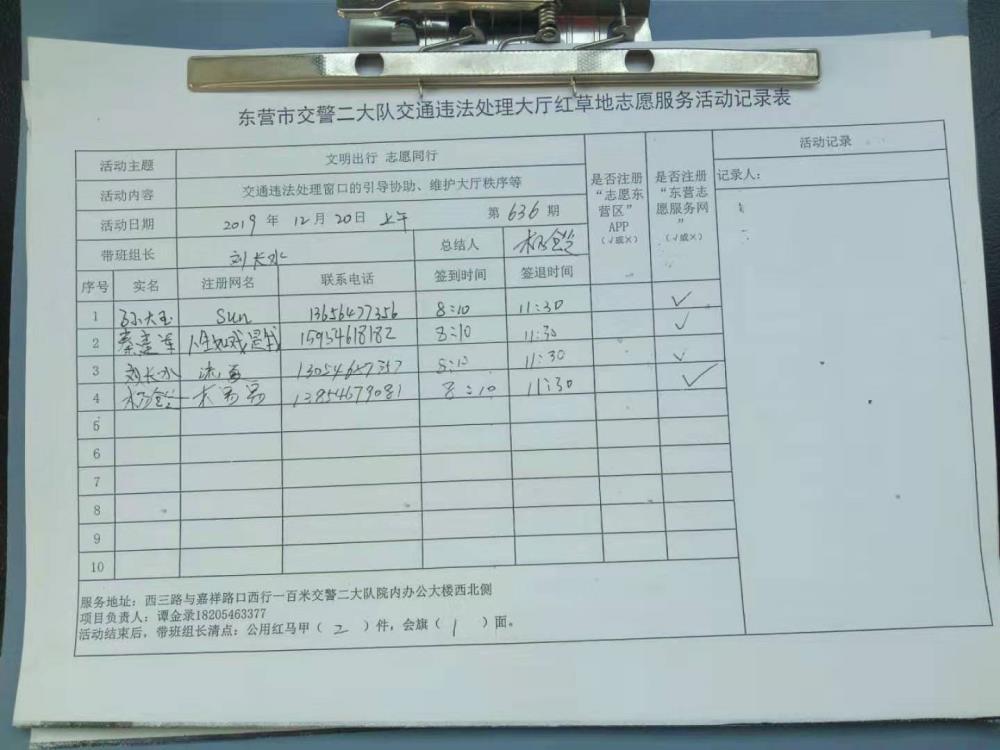 东营市交警二大队交通违法处理大厅红草地志愿服务活动记录表
活动主题 文明出行 志愿同行
活动内容 交通违法处理窗口的引导协助、维护大厅秩序等
活动日期 2019 年 12 月 20 日 上午 第 636 期
带班组长 刘长水 总结人 杨
是否注册“志愿东营区”APP（√或×）
是否注册“东营志愿服务网”（√或×）
活动记录
记录人：
序号 实名 注册网名 联系电话 签到时间 签退时间
1 孙大玉 Sun 13656477356 8:10 11:30 √
2 秦建军 人生如戏是我 15954618182 8:10 11:30 √
3 刘长水 8:10 11:30 √
4 杨 木易 13954679081 8:10 11:30 √
5
6
7
8
9
10
服务地址：西三路与嘉祥路口西行一百米交警二大队院内办公大楼西北侧
项目负责人：谭金录18205463377
活动结束后，带班组长清点：公用红马甲（ 2 ）件，会旗（ 1 ）面。